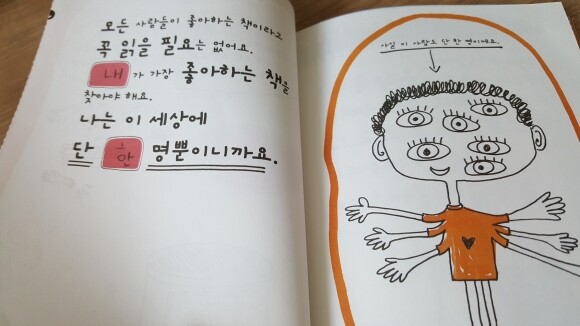 모든 사람들이 좋아하는 책이라고
꼭 읽을 필요는 없어요.
내가 가장 좋아하는 책을
찾아야 해요.
나는 이 세상에
단 한 명뿐이니까요.
사실 이 사람도 단 한 명이에요.